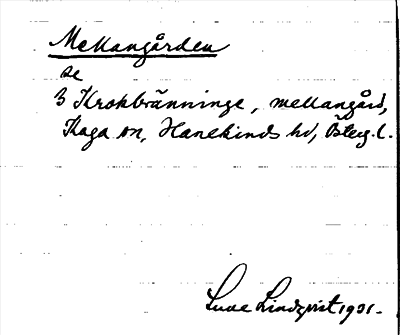 Mellangården
se
3 Krokbränninge, mellangård,
Kaga sn, Hanekinds hd, Österg. l.
Sune Lindqvist 1931.